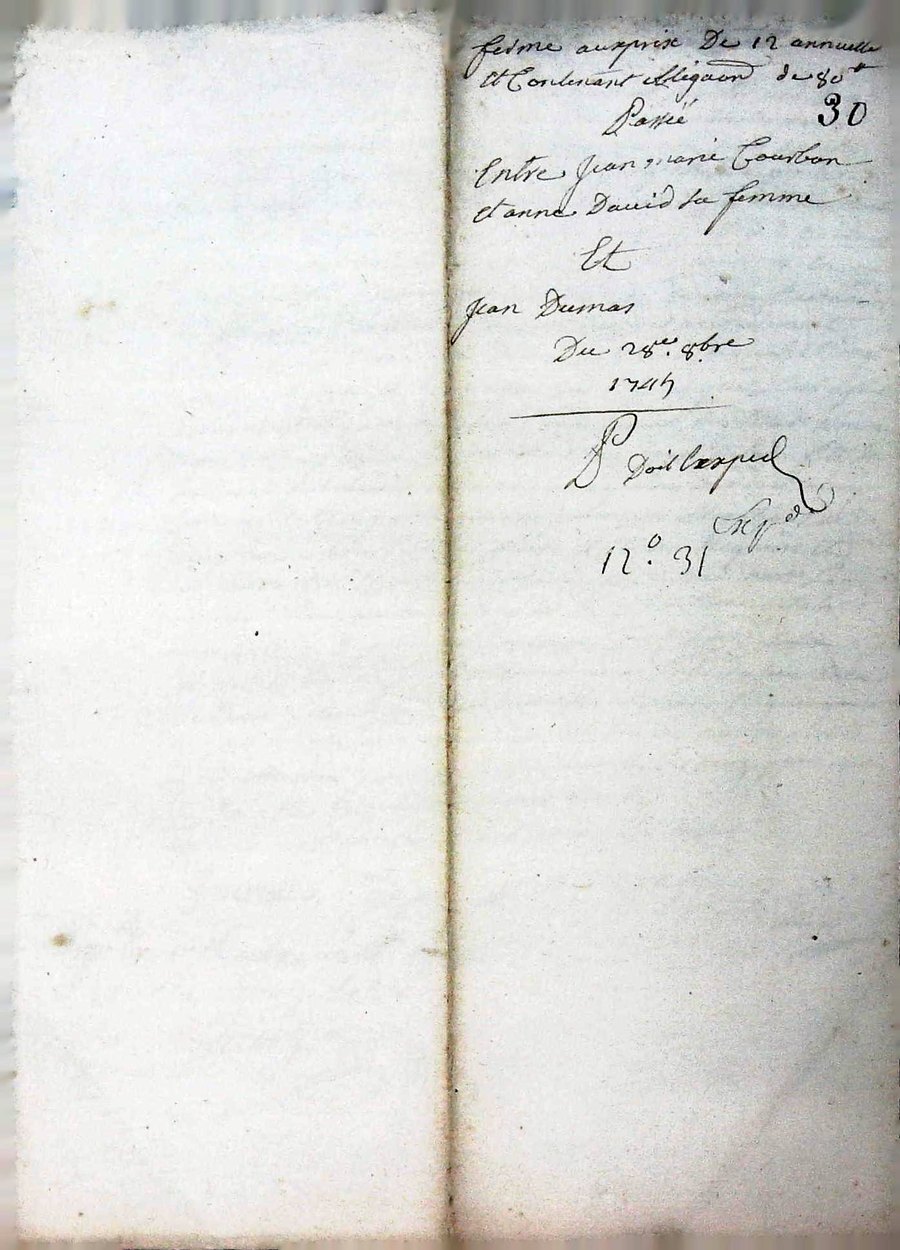 ferme au prix De 12 annuelle
Et Contenant obligaon de 80#
30
Passé
Entre Jean marie Courbon
Et anne David sa femme
Et
Jean Dumas
Du 28e. 8bre
1745
Doit lexped
Exped
12°. 31